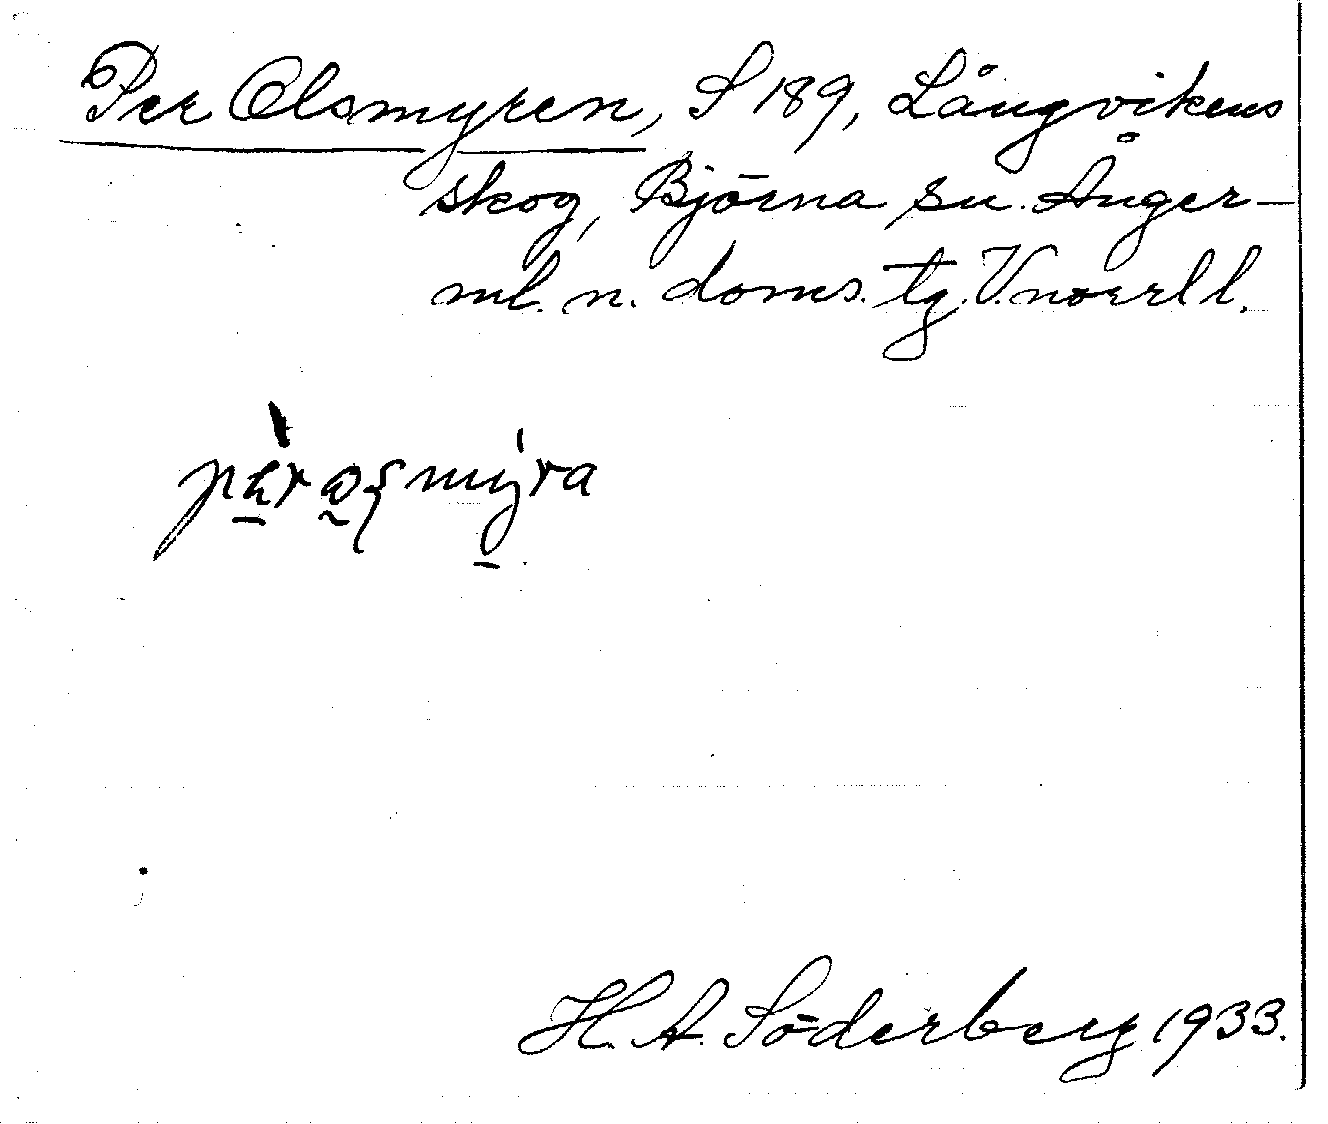 Per Olsmyren, S 189, Långvikens
skog, Björna sn. Ånger-
ml. n. doms. tg. V.norrl l.
H. A. Söderberg 1933.